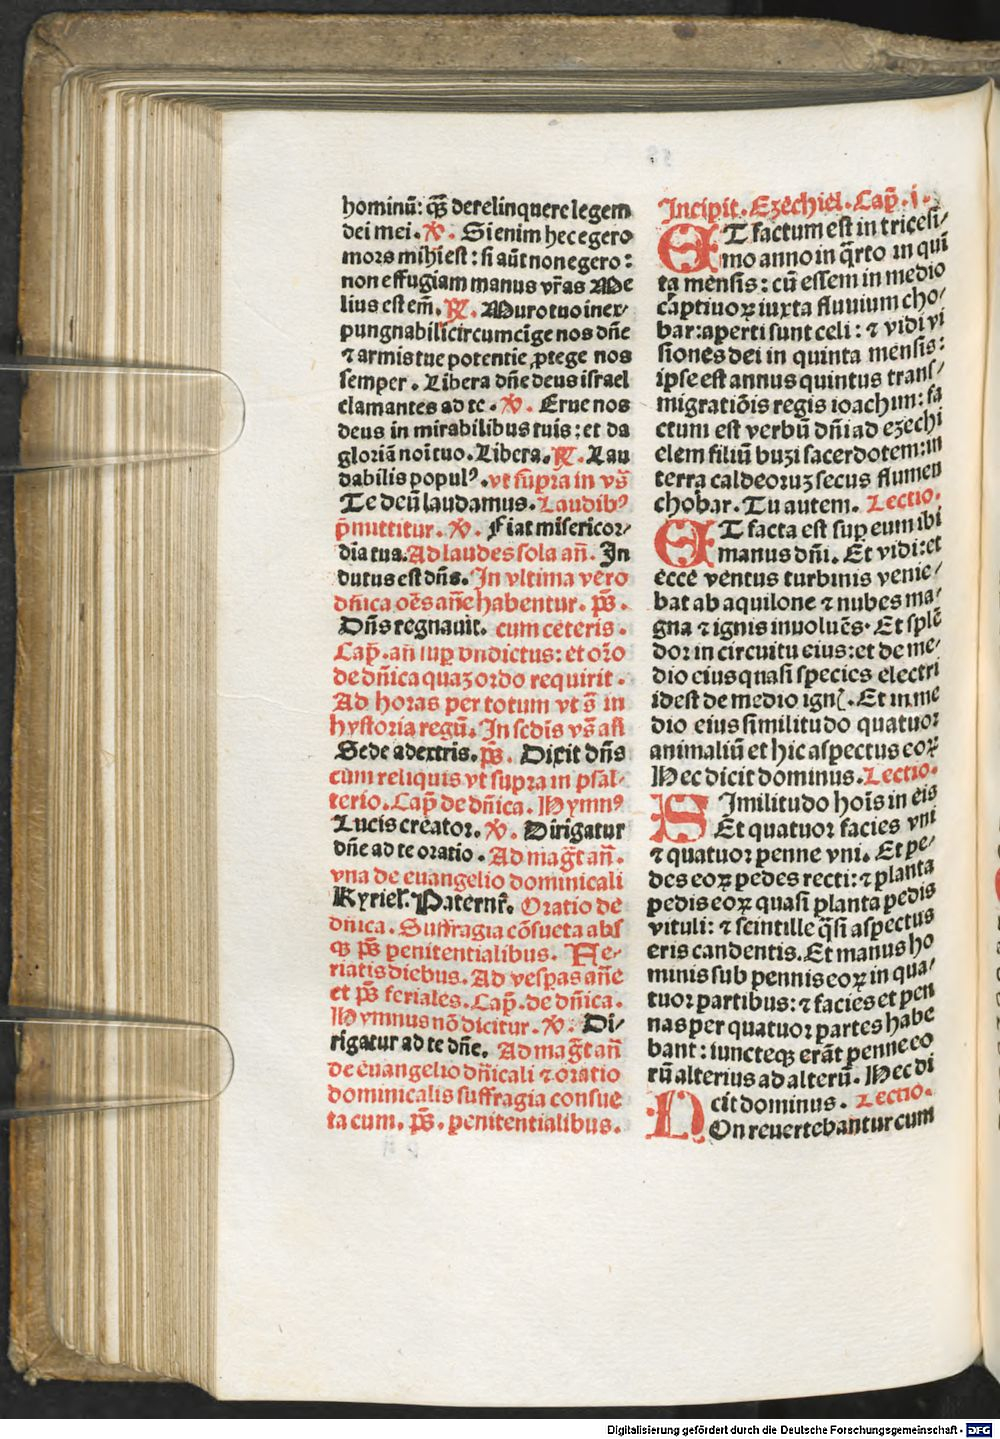 hominū: qȝ̄ derelinquere legem
dei mei. ℣. Si enim hec egero
mors mihi est: si aūt non egero:
non effugiam manus vr̄as Me
lius est em̄. ℟. Muro tuo inex-
pungnabili circumcīge nos dn̄e
⁊ armis tue potentie ꝓtege nos
semper. Libera dn̄e deus israel
clamantes ad te. ℣. Erue nos
deus in mirabilibus tuis: et da
gloriā noi̅ tuo. Libera. ℟. Lau
dabilis populꝰ. vt supra in vꝰ̄
Te deū laudamus. Laudibꝰ
p̄mittitur. ℣. Fiat misericor-
dia tua. Ad laudes sola an̄. In
dutus est dn̄s. In vltima vero
dn̄ica oēs an̄e habentur. p̄s.
Dn̄s regnauit. cum ceteris.
Cap̄. an̄ sup bn̄dictus: et or̄o
de dn̄ica quaȝ ordo requirit.
Ad horas per totum vt s̄ in
hystoria regū. In scdis vs̄ an̄
Sede a dextris. p̄s. Dixit dn̄s
cum reliquis vt supra in psal-
terio. Cap̄ de dn̄ica. Hymnꝰ
Lucis creator. ℣. Dirigatur
dn̄e ad te oratio. Ad mag̅t an̄.
vna de euangelio dominicali
Kyriel. Paternr̄. Oratio de
dn̄ica. Suffragia cōsueta abs
qȝ p̄s penitentialibus. Fe-
riatis diebus. Ad vespas an̄e
et p̄s feriales. Cap̄. de dn̄ica.
Hymnus nō dicitur. ℣. Di-
rigatur ad te dn̄e. Ad mag̅t an̄
de euangelio dn̄icali ⁊ oratio
dominicalis suffragia consue
ta cum. p̄s. penitentialibus.
Incipit. Ezechiel. Cap̄. i.
ET factum est in tricesi-
mo anno in q̄rto in qui
ta mensis: cū essem in medio
captiuoꝝ iuxta fluuium cho-
bar: aperti sunt celi: ⁊ vidi vi
siones dei in quinta mensis:
ipse est annus quintus trans-
migratiōis regis ioachim: fa
ctum est verbū dn̄i ad ezechi
elem filiū buzi sacerdotem: in
terra caldeoruȝ secus flumen
chobar. Tu autem. Lectio.
ET facta est sup eum ibi
manus dn̄i. Et vidi: et
ecce ventus turbinis venie-
bat ab aquilone ⁊ nubes ma-
gna ⁊ ignis inuoluēs. Et splē
dor in circuitu eius: et de me-
dio eius quasi species electri
idest de medio ignꝭ. Et in me
dio eius similitudo quatuor
animaliū et hic aspectus eoꝝ
Hec dicit dominus. Lectio.
SImilitudo hoīs in eis
Et quatuor facies vni
⁊ quatuor penne vni. Et pe-
des eoꝝ pedes recti: ⁊ planta
pedis eoꝝ quasi planta pedis
vituli: ⁊ scintille q̄si aspectus
eris candentis. Et manus ho
minis sub pennis eoꝝ in qua-
tuor partibus: ⁊ facies et pen
nas per quatuor partes habe
bant: iuncteqȝ erāt penne eo
rū alterius ad alterū. Hec di
cit dominus. Lectio.
NOn reuertebantur cum
Digitalisierung gefördert durch die Deutsche Forschungsgemeinschaft - DFG